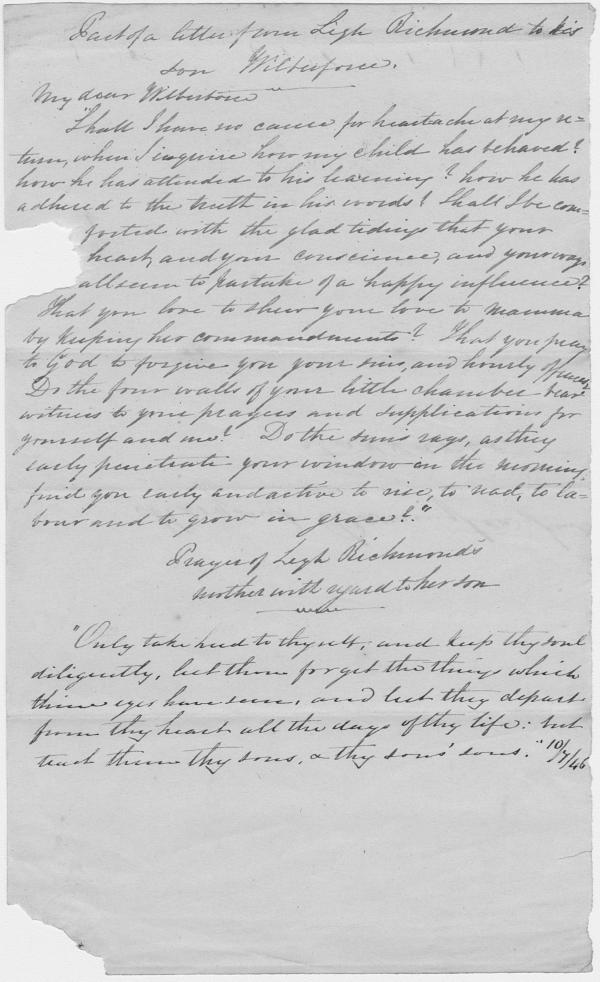 Part of a letter from Legh Richmond to his
son Wilberforce.
My dear Wilberforce
"Shall I have no cause for heartache at my re=
turn, when I inquire how my child has behaved?
how he has attended to his learning? how he has
adhered to the truth in his words? Shall I be com=
forted with the glad tidings that your
heart, and your conscience, and your ways
all seem to partake of a happy influence?
That you love to shew your love to Mamma
by keeping her commandments? That you pray
to God to forgive you your sins, and hourly offences
Do the four walls of your little chamber bear
witness to your prayers and supplications for
yourself and me? Do the suns rays, as they
early penetrate your window in the morning,
find you early and active to rise, to read, to la=
bour and to grow in grace?."
Prayer of Legh Richmond's
mother with regard to her son
"Only take heed to thyself, and keep thy soul
diligently, lest thou forget the things which
thine eyes have seen, and lest they depart
from thy heart all the days of thy life: but
teach them thy sons, & thy sons' sons." 10/7/46